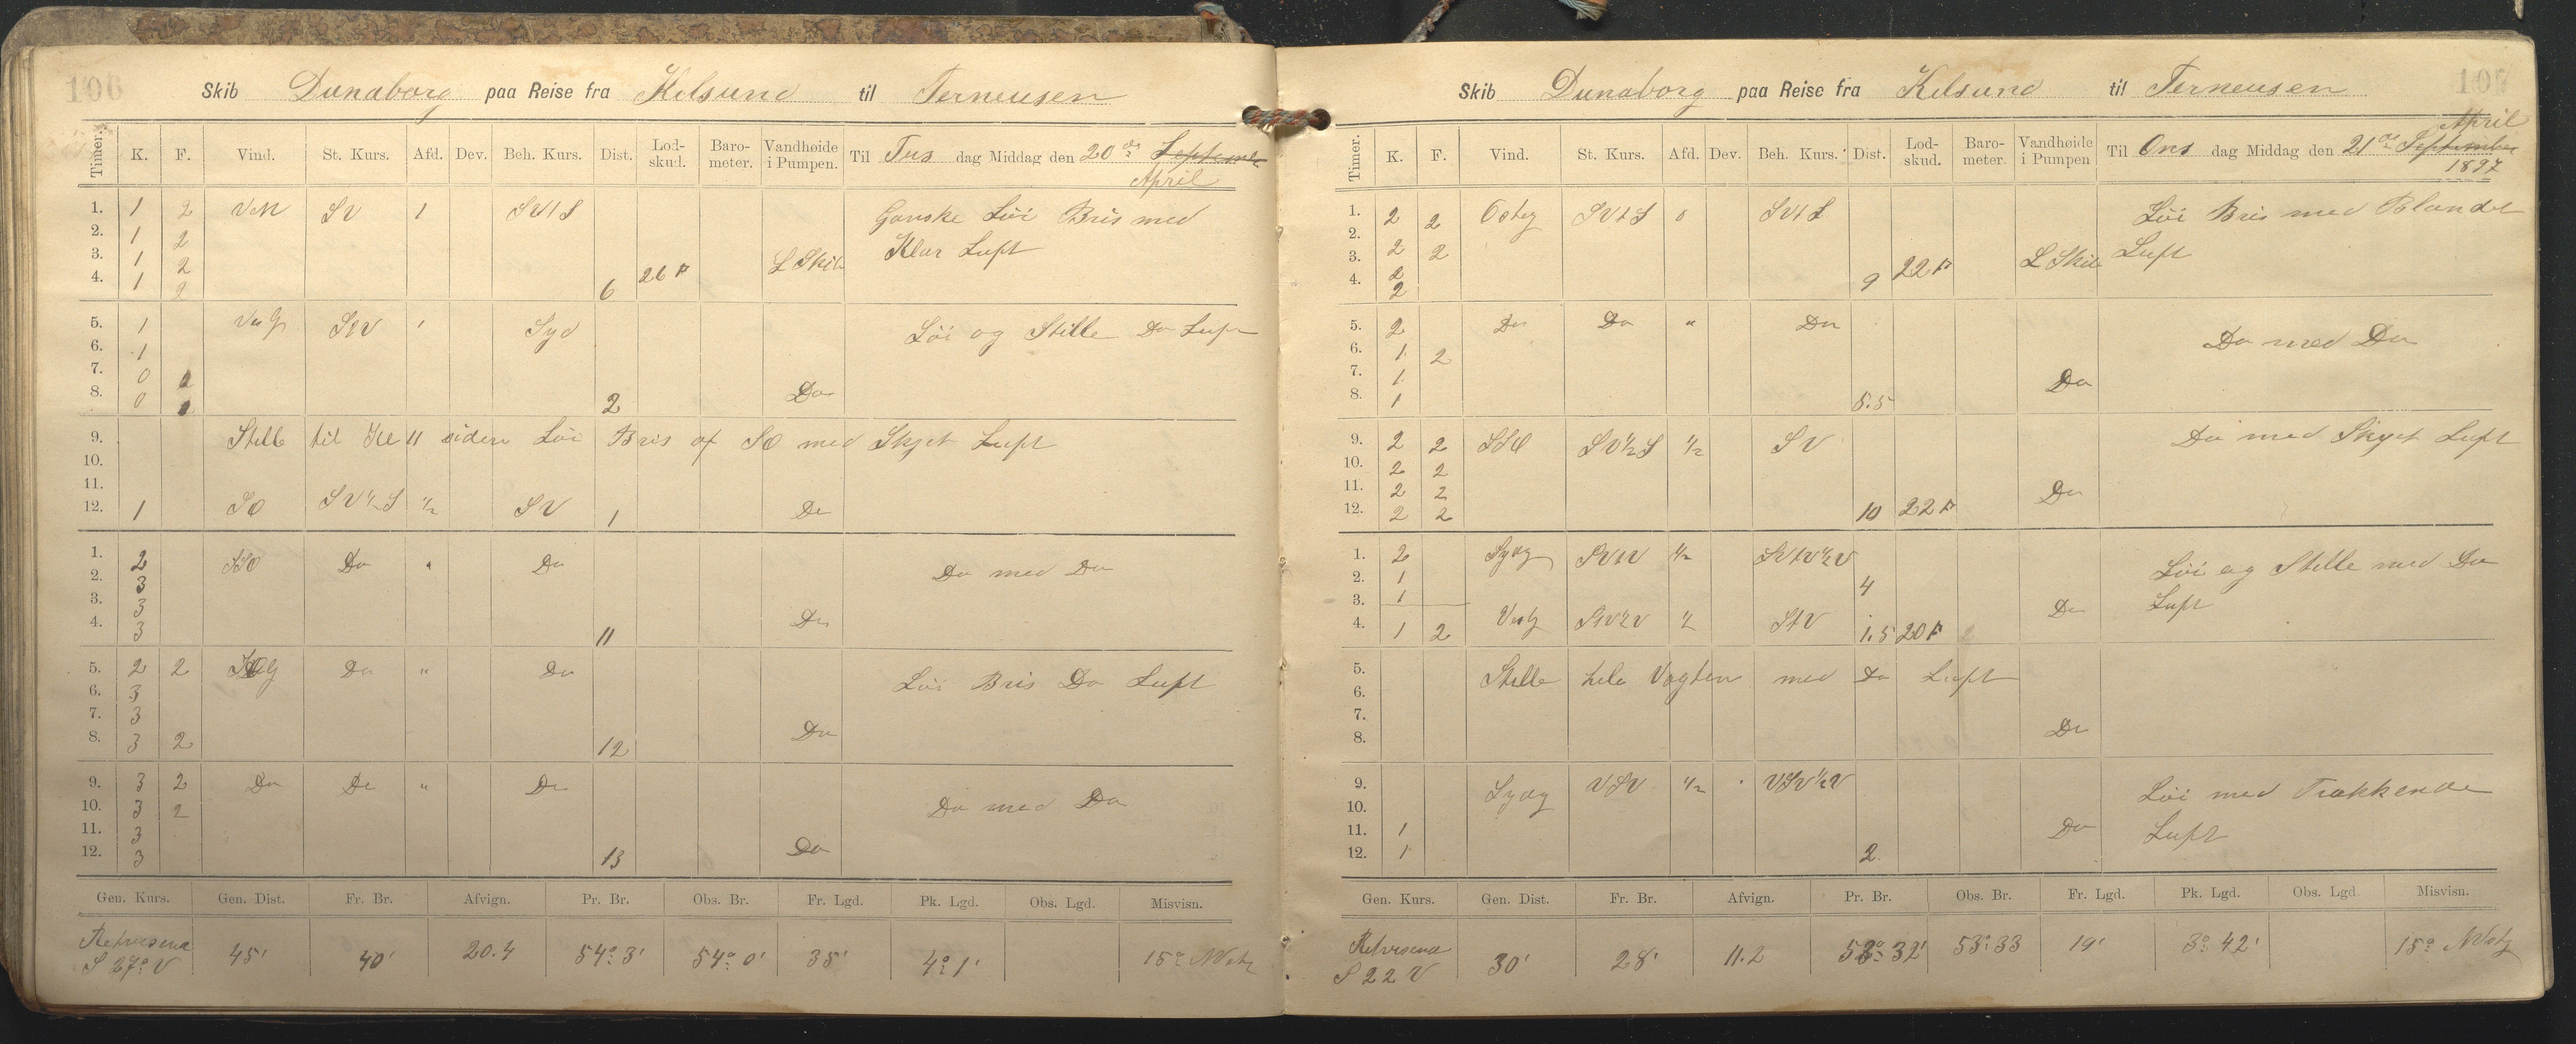 106
Skib Dunaborg paa Reise fra Kilsund til Terneusen
Timer. K. F. Vind. St. Kurs. Afd. Dev. Beh. Kurs. Dist. Lod-skud. Baro-meter. Vandhøide i Pumpen. Til Tirs dag Middag den 20de September
April
1. 1 2 VNV SV 1 SVtS Ganske Løi Bris med
2. 1 2
3. 1 2 26 F L Skib Klar Luft
4. 1 2 6
5. 1 StV 1 Syd Løi og Stille Do Luft
6. 1
7. 0
8. 0 2 Do
9. Stille til Kl 11 siden Løi Bris af SO med Skyet Luft
10.
11.
12. 1 SO SV½S ½ SV 1 Do
1. 2 SSO Do " Do Do med Do
2. 3
3. 3
4. 3 11 Do
5. 2 2 Do " Do Løi Bris Do Luft
6. 3
7. 3
8. 3 2 12 Do
9. 3 2 Do Do " Do
10. 3 2 Do med Do
11. 3
12. 3 13 Do
Gen. Kurs. Gen. Dist. Fr. Br. Afvign. Pr. Br. Obs. Br. Fr. Lgd. Pk. Lgd. Obs. Lgd. Misvisn.
Retvisend
S 27° V 45' 40' 20.4 54° 3' 54° 0' 35' 4° 1' 15° NVstg
107
Skib Dunaborg paa Reise fra Kilsund til Terneusen
April
Timer. K. F. Vind. St. Kurs. Afd. Dev. Beh. Kurs. Dist. Lod-skud. Baro-meter. Vandhøide i Pumpen Til Ons dag Middag den 21de September
1897
1. 2 2 Osteg SVtS 0 SVtS Løi Bris med Blandet
2.
3. 2 2 22 F L Skib Luft
4. 2 2 9
5. 2 Do Do " Do Do med Do
6. 1 2
7. 1 Do
8. 1 5.5
9. 2 2 SSO SV½S ½ SV Do med Skyet Luft
10. 2 2
11. 2 2 Do
12. 2 2 10 22 F
1. 2 Sydg SVtV ½ SVtV½V Løi og Stille med Do
2. 1 4
3. 1 Do Luft
4. 1 2 Vestg ½ 1.5 20 F
5. Stille hele Vagten med Do Luft
6.
7.
8. Do
9. Sydg VSV ½ VSV½V Løi med Trækkende
10.
11. 1 Do Luft
12. 1 2
Gen. Kurs. Gen. Dist. Fr. Br. Afvign. Pr. Br. Obs. Br. Fr. Lgd. Pk. Lgd. Obs. Lgd. Misvisn.
Retvisend
S 22 V 30' 28' 11.2 53° 32' 53° 33 19' 3° 42' 15° NVstg